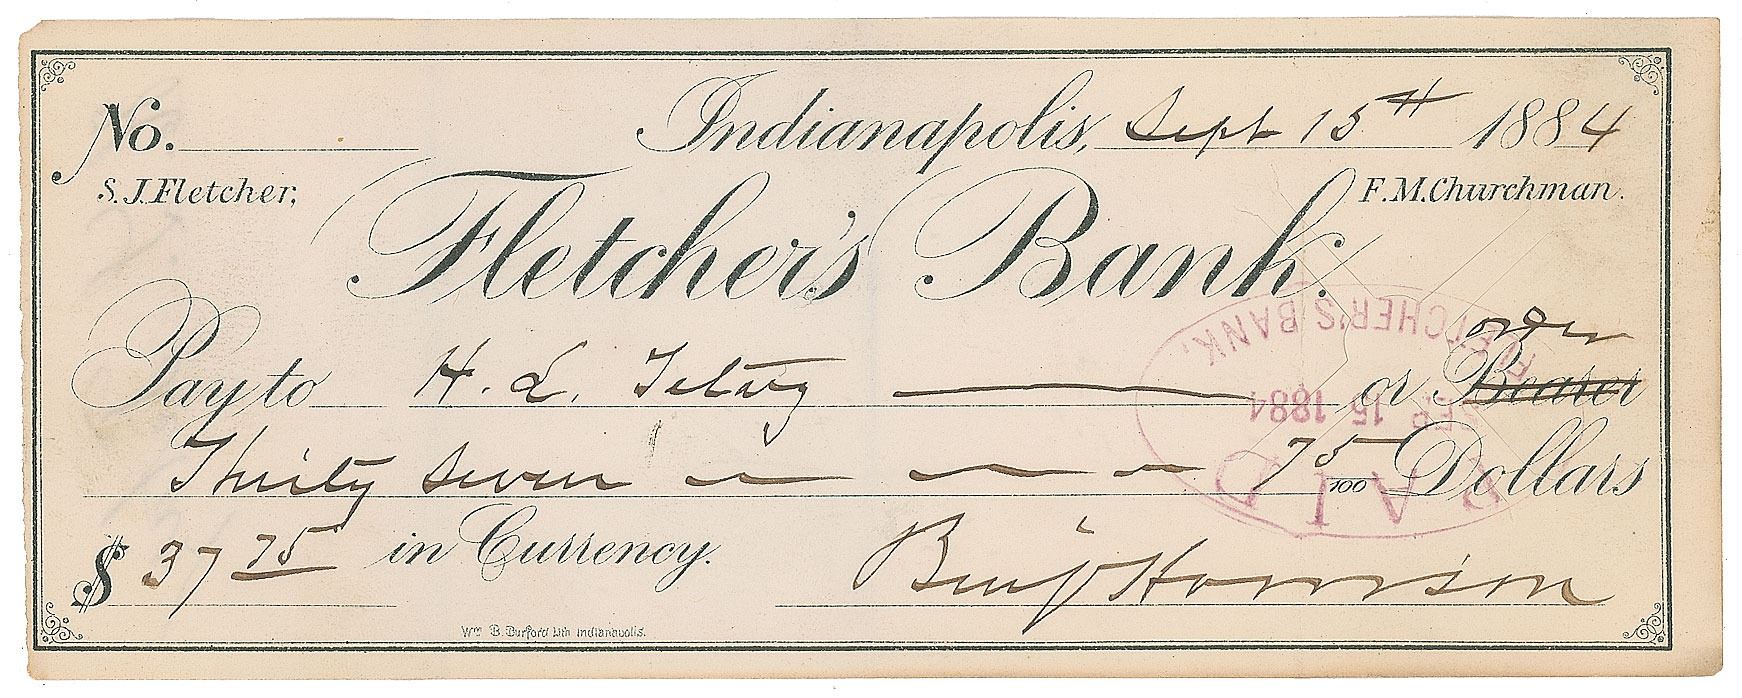 No. Indianapolis, Sept 15th 1884
S. J. Fletcher, F. M. Churchman.
Fletcher's Bank.
order
Pay to H. L. or Bearer
Thirty Seven 75/100 Dollars
$ 37 75 in Currency. Benj Harrison
Wm. B. Burford Lith Indianapolis.
FLETCHER'S BANK.
SEP 15 1884
PAID